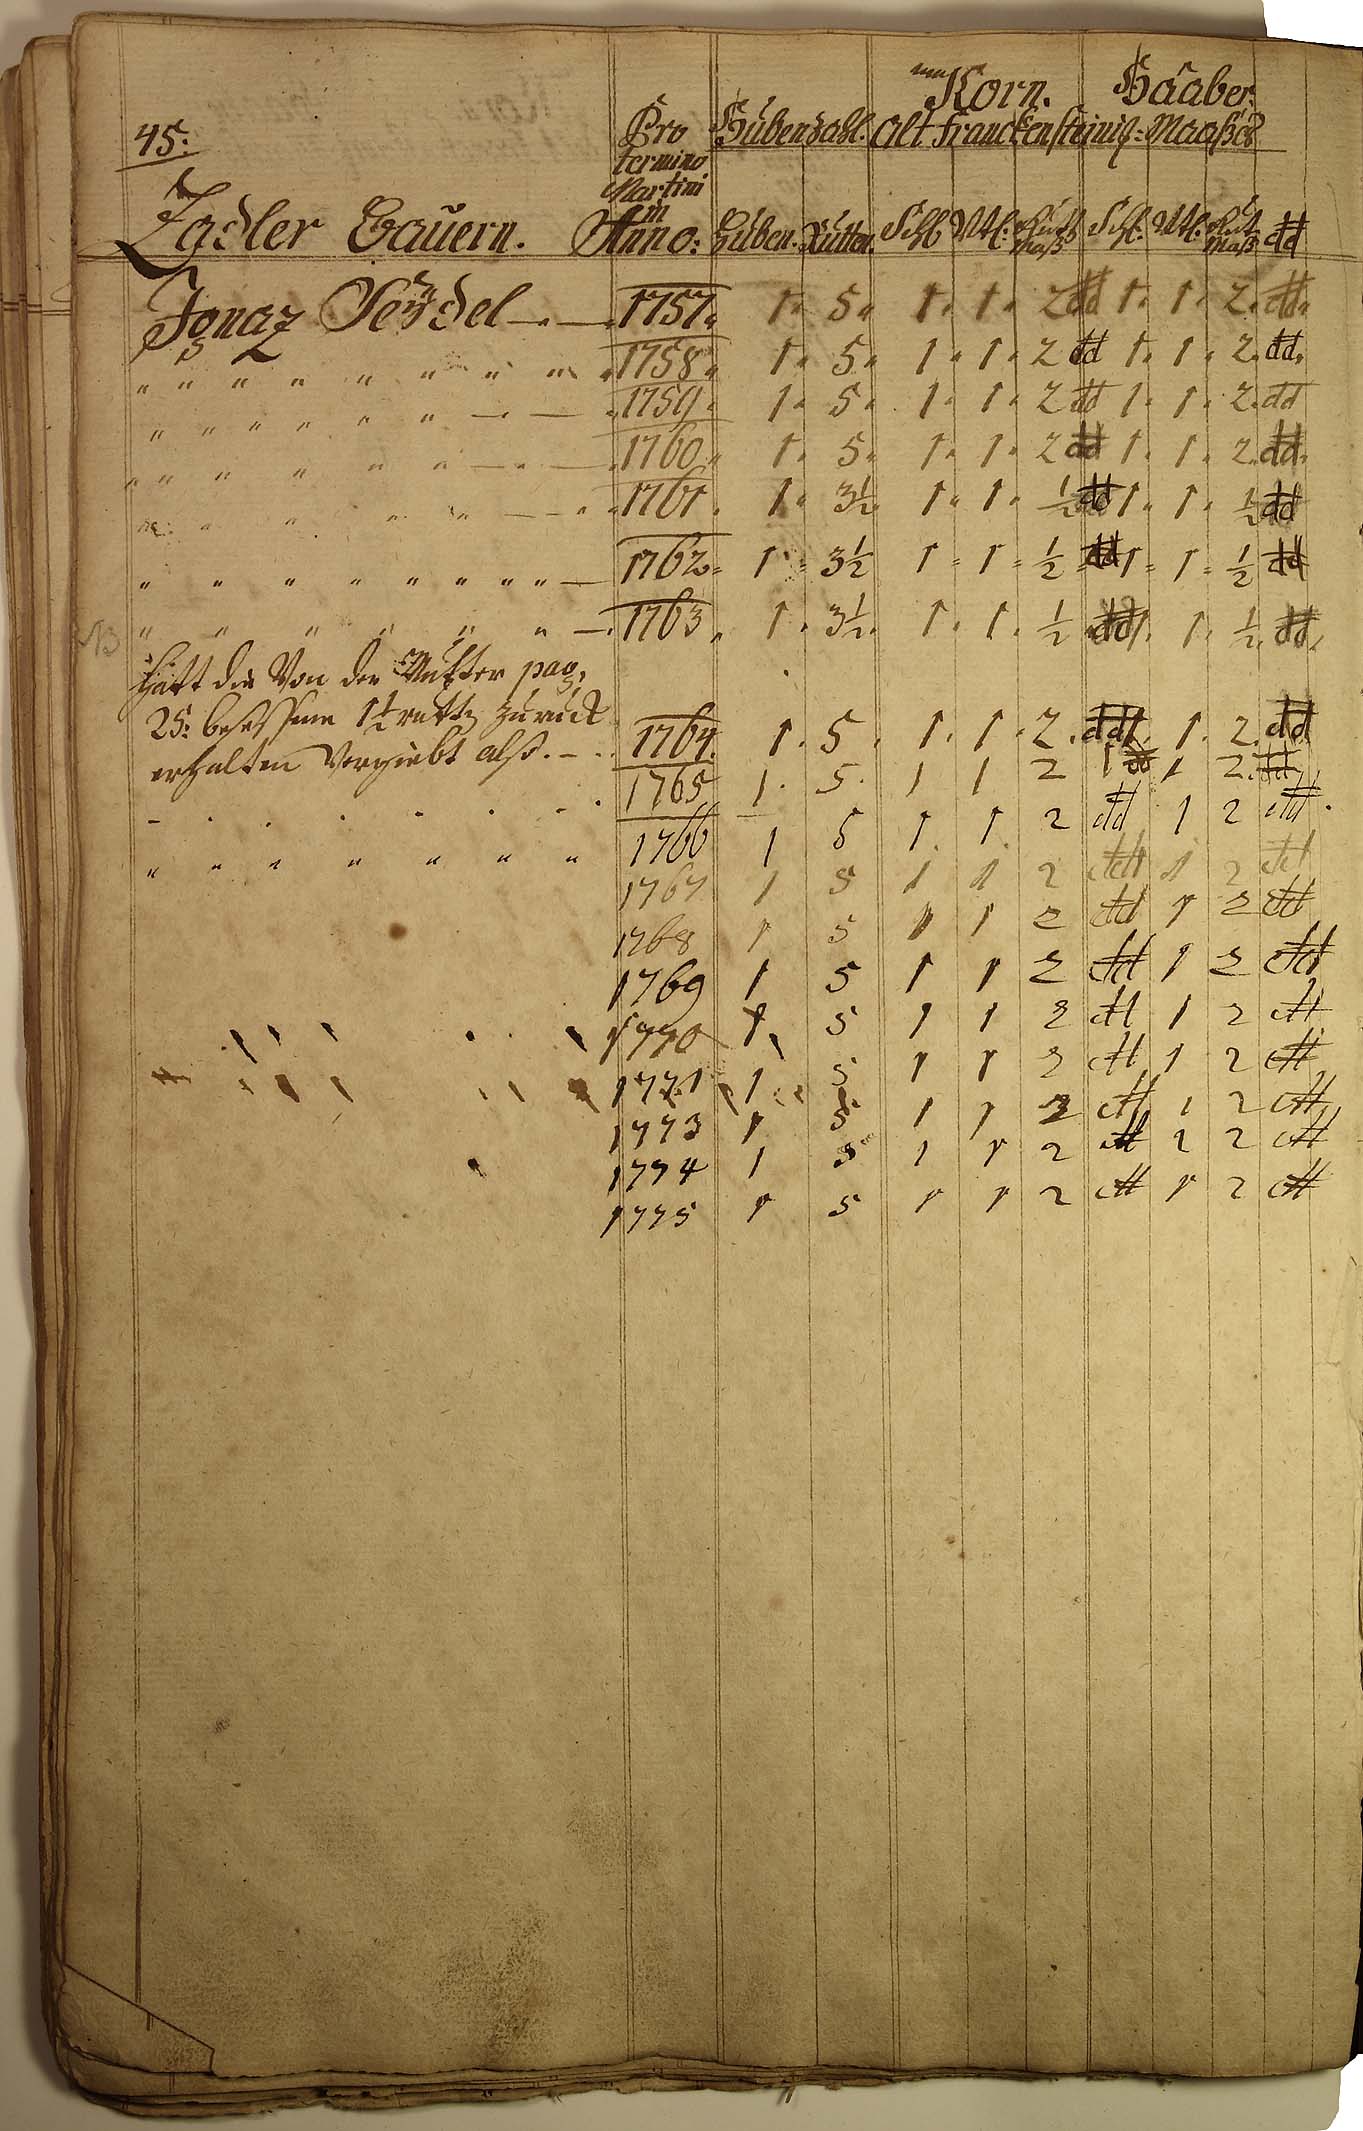 45:
Korn. Haaber.
Pro Hubenzahl. Alt Franckensteinis: Maaßes
termino
Martini
in
Zadler Bauern. Anno: Huben. Rutten. Schl Vtl: Maß Schl. Vtl. Maß dd
Ignaz Seÿdel 1757 1 5 1 1 2 dd 1 1 2 dd
" " " " " " " " 1758 1 5 1 1 2 dd 1 1 2 dd
" " " " " " 1759 1 5 1 1 2 dd 1 1 2 dd
" " " " " " 1760 1 5 1 1 2 dd 1 1 2 dd
" " " " " 1761 1 3½ 1 1 ½ dd 1 1 ½ dd
" " " " " " " " 1762 1 3½ 1 1 ½ dd 1 1 ½ dd
" " " " " " 1763 1 3½ 1 1 ½ dd 1 1 ½ dd
NB
Hatt die Von der Mutter pag:
25: besessene 1½ rutt: zurück
erhalten Vergiebt also. 1764 1 5 1 1 2 dd 1 1 2 dd
1765 1 5 1 1 2 1 dd 1 2 dd
" " " " " " " " 1766 1 5 1 1 2 dd 1 2 dd
1767 1 5 1 1 2 dd 1 2 dd
1768 1 5 1 1 2 dd 1 2 dd
1769 1 5 1 1 2 dd 1 2 dd
1770 1 5 1 1 2 dd 1 2 dd
1771 1 5 1 1 2 dd 1 2 dd
1773 1 5 1 1 2 dd 1 2 dd
1774 1 5 1 1 2 dd 1 2 dd
1775 1 5 1 1 2 dd 1 2 dd